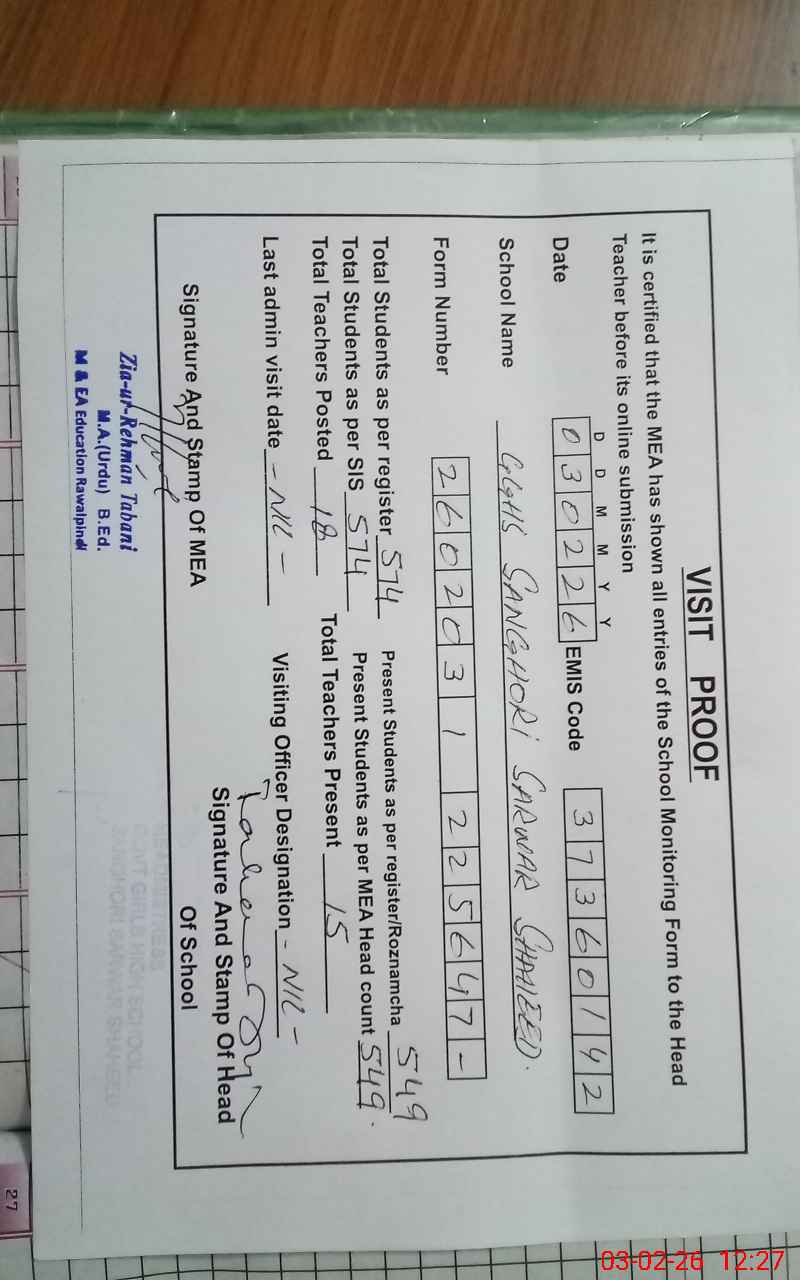 VISIT PROOF
It is certified that the MEA has shown all entries of the School Monitoring Form to the Head
Teacher before its online submission
D D M M Y Y
Date 030226 EMIS Code 37360142
School Name GGHS SANGHORI SARWAR SHAHEED.
Form Number 2602031225647-
Total Students as per register 574 Present Students as per register/Roznamcha 549
Total Students as per SIS 574 Present Students as per MEA Head count 549.
Total Teachers Posted 18 Total Teachers Present 15
Last admin visit date -NIL- Visiting Officer Designation -NIL-
Signature And Stamp Of MEA
Signature And Stamp Of Head
Of School
Zia-ur-Rehman Tabani
M.A.(Urdu) B.Ed.
M & EA Education Rawalpindi
HEADMISTRESS
GOVT GIRLS HIGH SCHOOL
SANGHORI SARWAR SHAHEED
27
03-02-26 12:27